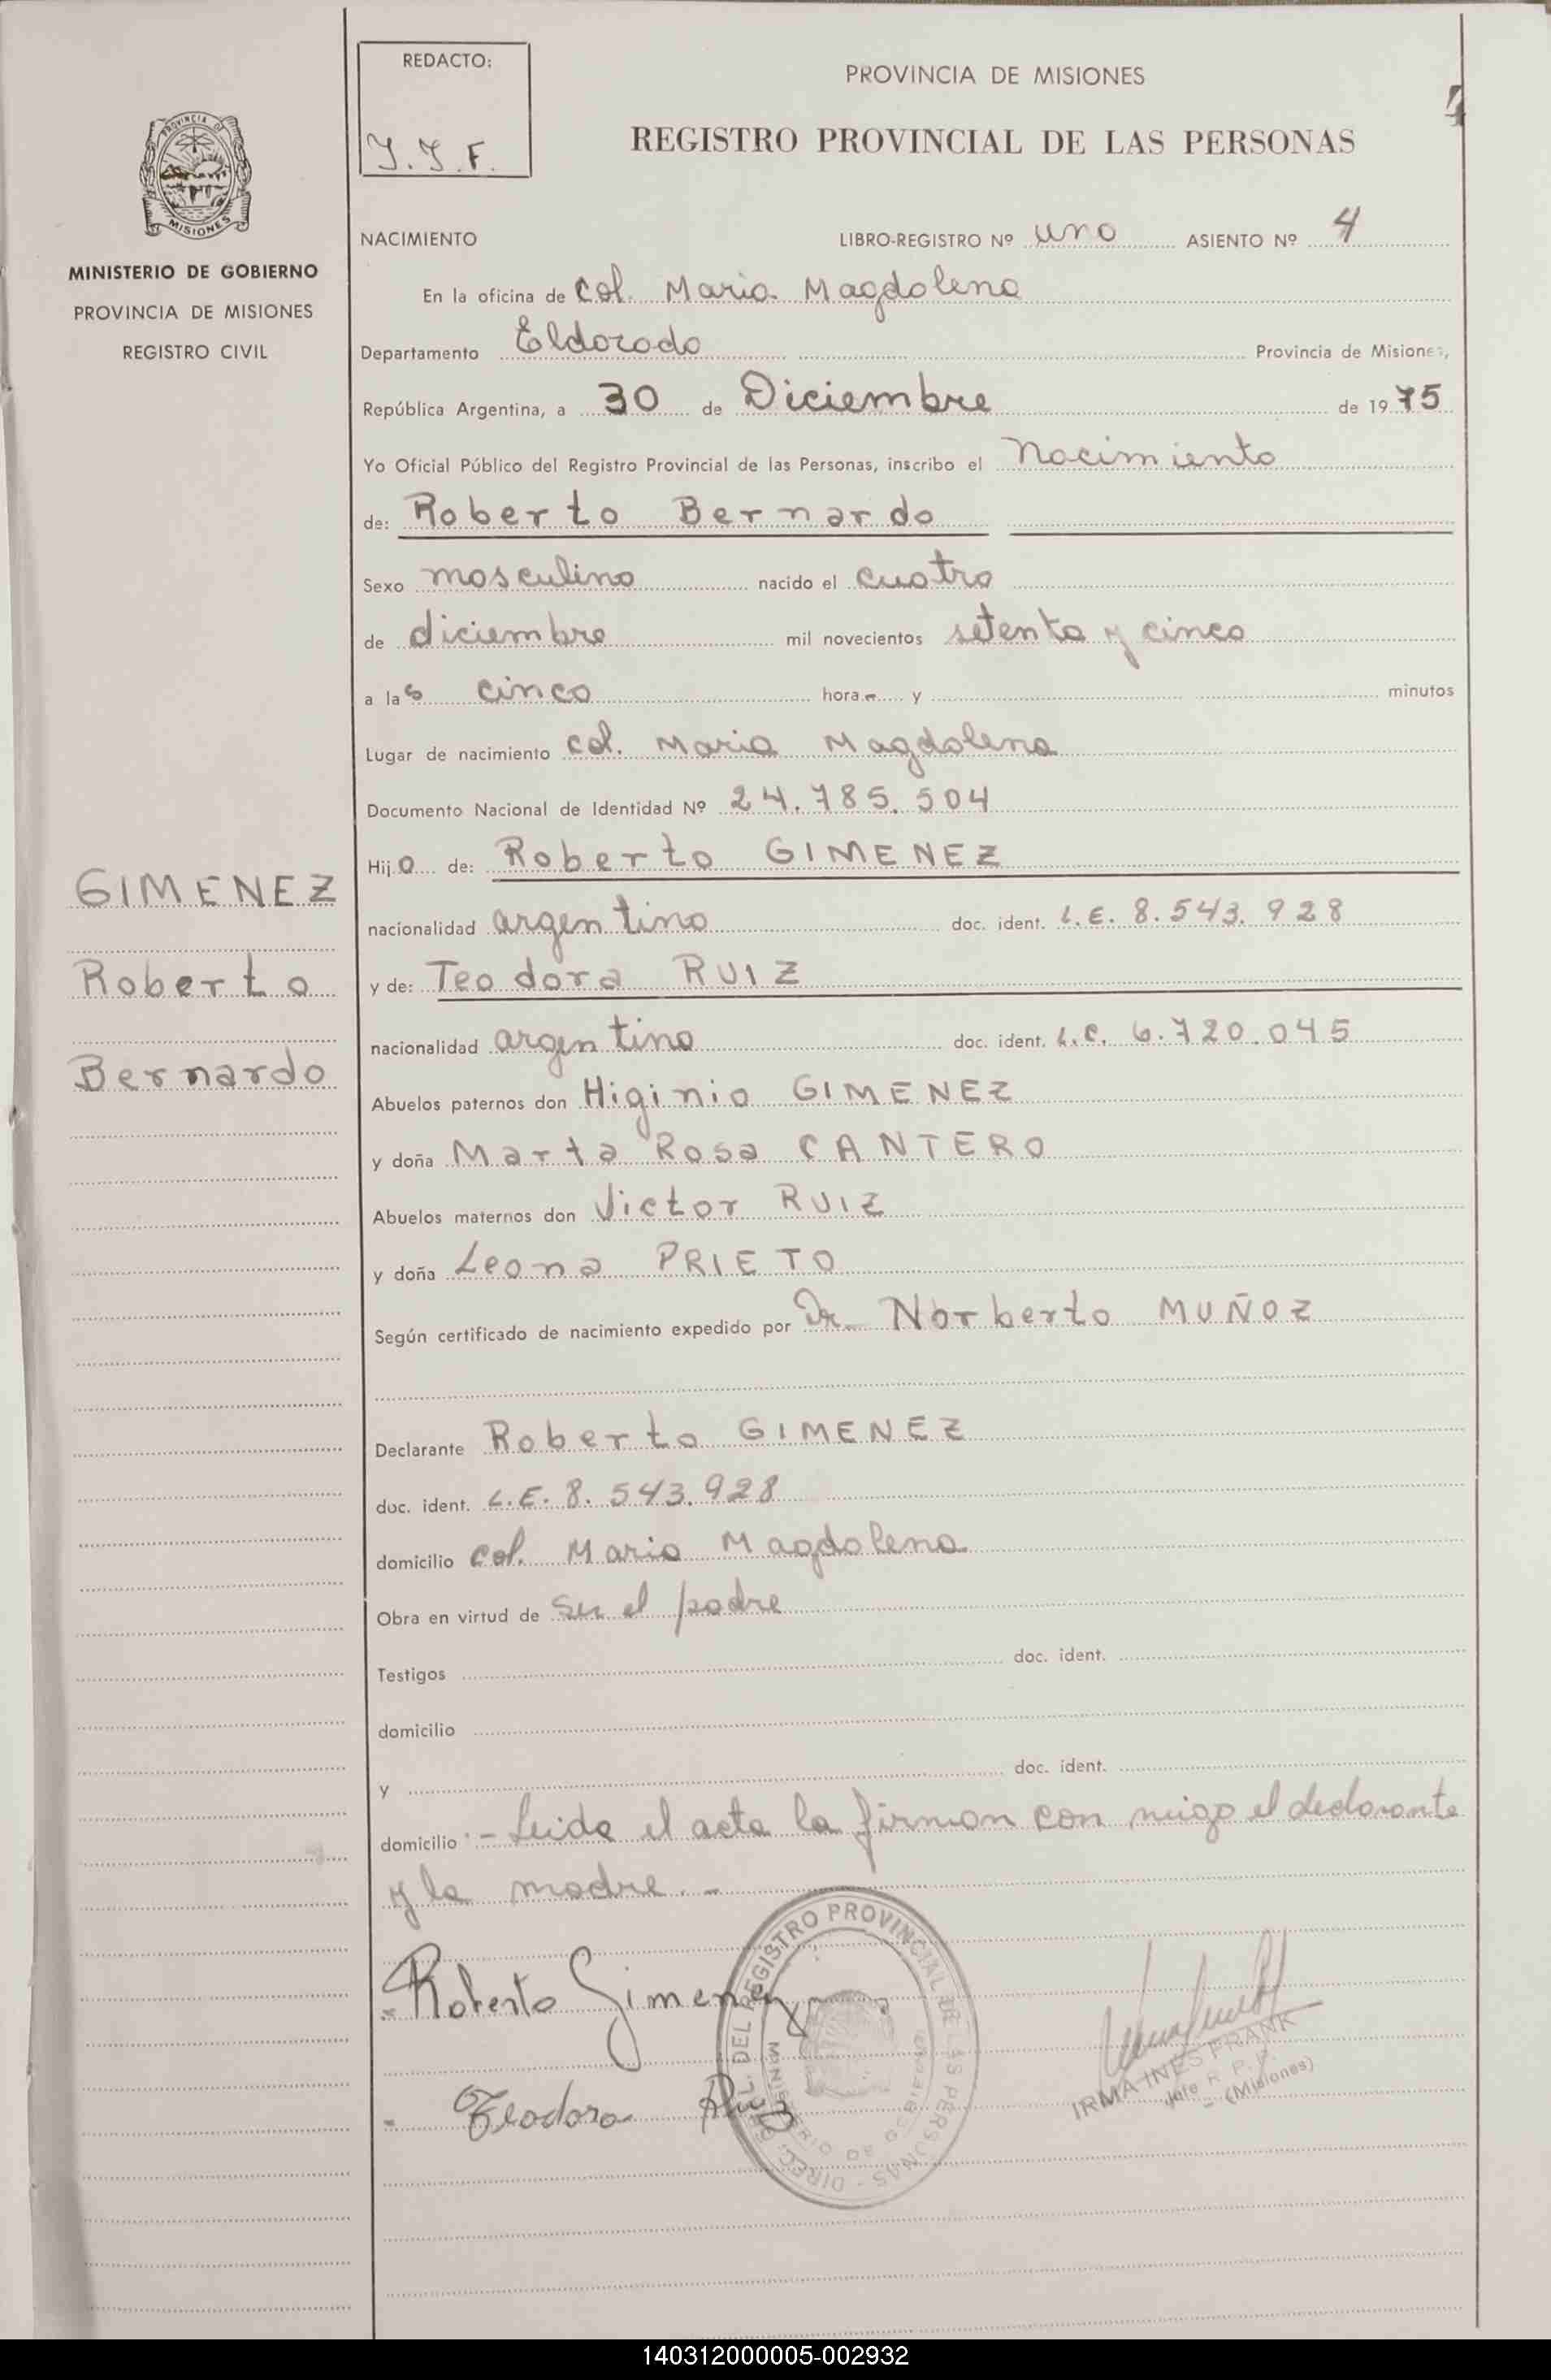 REDACTO:
J. J. F.
PROVINCIA DE MISIONES
4
REGISTRO PROVINCIAL DE LAS PERSONAS
PROVINCIA DE
MISIONES
MINISTERIO DE GOBIERNO
PROVINCIA DE MISIONES
REGISTRO CIVIL
GIMENEZ
Roberto
Bernardo
NACIMIENTO LIBRO-REGISTRO Nº uno ASIENTO Nº 4
En la oficina de Col. Maria Magdalena
Departamento Eldorado Provincia de Misiones,
República Argentina, a 30 de Diciembre de 1975
Yo Oficial Público del Registro Provincial de las Personas, inscribo el Nacimiento
de: Roberto Bernardo
Sexo masculino nacido el cuatro
de diciembre mil novecientos setenta y cinco
a las cinco hora - y minutos
Lugar de nacimiento Col. Maria Magdalena
Documento Nacional de Identidad Nº 24.785.504
Hijo de: Roberto GIMENEZ
nacionalidad argentino doc. ident. L.E. 8.543.928
y de: Teodora RUIZ
nacionalidad argentina doc. ident. L.C. 6.720.045
Abuelos paternos don Higinio GIMENEZ
y doña Marta Rosa CANTERO
Abuelos maternos don Victor RUIZ
y doña Leona PRIETO
Según certificado de nacimiento expedido por Dr. Norberto MUÑOZ
Declarante Roberto GIMENEZ
doc. ident. L.E. 8.543.928
domicilio Col. Maria Magdalena
Obra en virtud de ser el padre
Testigos doc. ident.
domicilio
y doc. ident.
domicilio - Leida el acta la firman con migo el declarante
y la madre. -
Roberto Gimenez
Teodora Ruiz
DIREC. GRAL. DEL REGISTRO PROVINCIAL DE LAS PERSONAS -
MINISTERIO DE GOBIERNO
IRMA INES FRANK
Jefe R. P. P.
(Misiones)
140312000005-002932